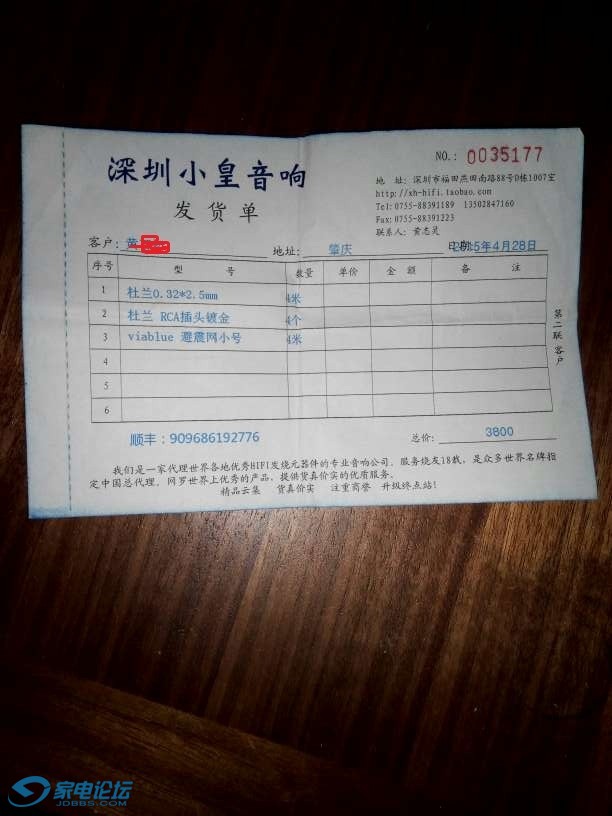 深圳小皇音响
NO.: 0035177
发货单
地 址: 深圳市福田燕田南路88号D栋1007室
http://xh-hifi.taobao.com
Tel:0755-88391189 13502847160
Fax:0755-88391223
联系人: 黄志灵
客户: 黄 地址: 肇庆 日期: 2015年4月28日
序号 型 号 数量 单价 金 额 备 注
1 杜兰0.32*2.5mm 4米
2 杜兰 RCA插头镀金 4个
3 viablue 避震网小号 4米
4
5
6
第二联客户
顺丰: 909686192776 总价: 3800
我们是一家代理世界各地优秀HIFI发烧元器件的专业音响公司。服务烧友18载, 是众多世界名牌指
定中国总代理。网罗世界上优秀的产品, 提供货真价实的优质服务。
精品云集 货真价实 注重商誉 升级终点站!
家电论坛
JDBBS.COM